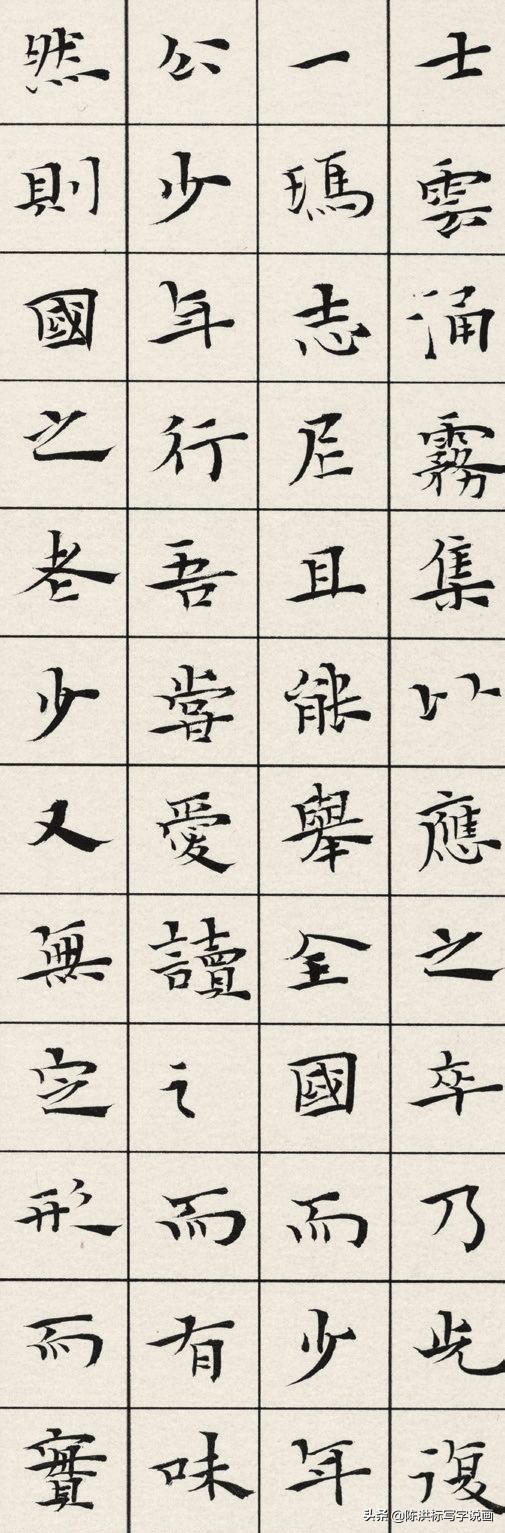 士雲涌霧集以應之卒乃光復
一瑪志尼且能舉全國而少年
公少年行吾嘗愛讀之而有味
然則國之老少又無定形而實
头条 @陈洪标写字说画